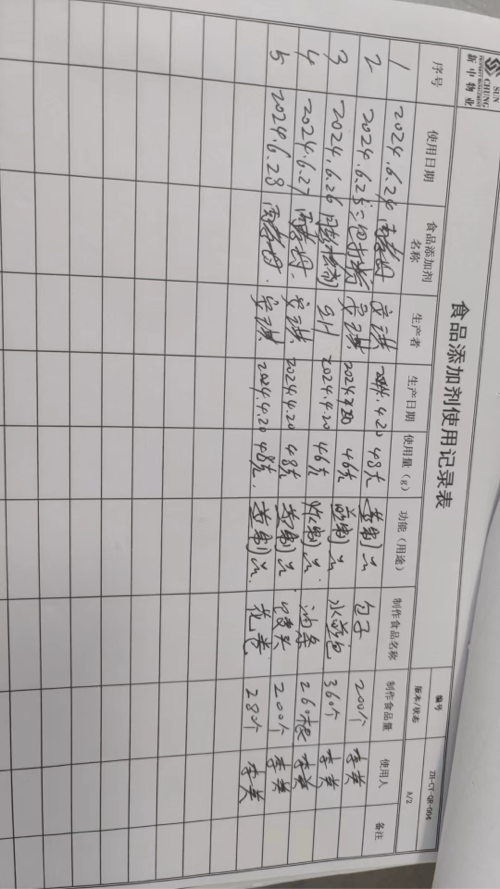 SUN CHUNG
新中物业
食品添加剂使用记录表
编号 ZH-CY-QR-004
版本/状态 A/2
序号 使用日期 食品添加剂名称 生产者 生产日期 使用量(g) 功能(用途) 制作食品名称 制作食品量 使用人 备注
1 2024.6.24 酵母 安琪 4.20 48克 制 包子 200个 李英
2 2024.6.25 安琪 2024.4.20 46克 制 水煎包 360个 李英
3 2024.6.26 2024.4.20 46克 炸制 油条 260根 李英
4 2024.6.27 酵母 安琪 2024.4.20 48克 制 馒头 200个 李英
5 2024.6.28 酵母 安琪 2024.4.20 48克 制 花卷 280个 李英